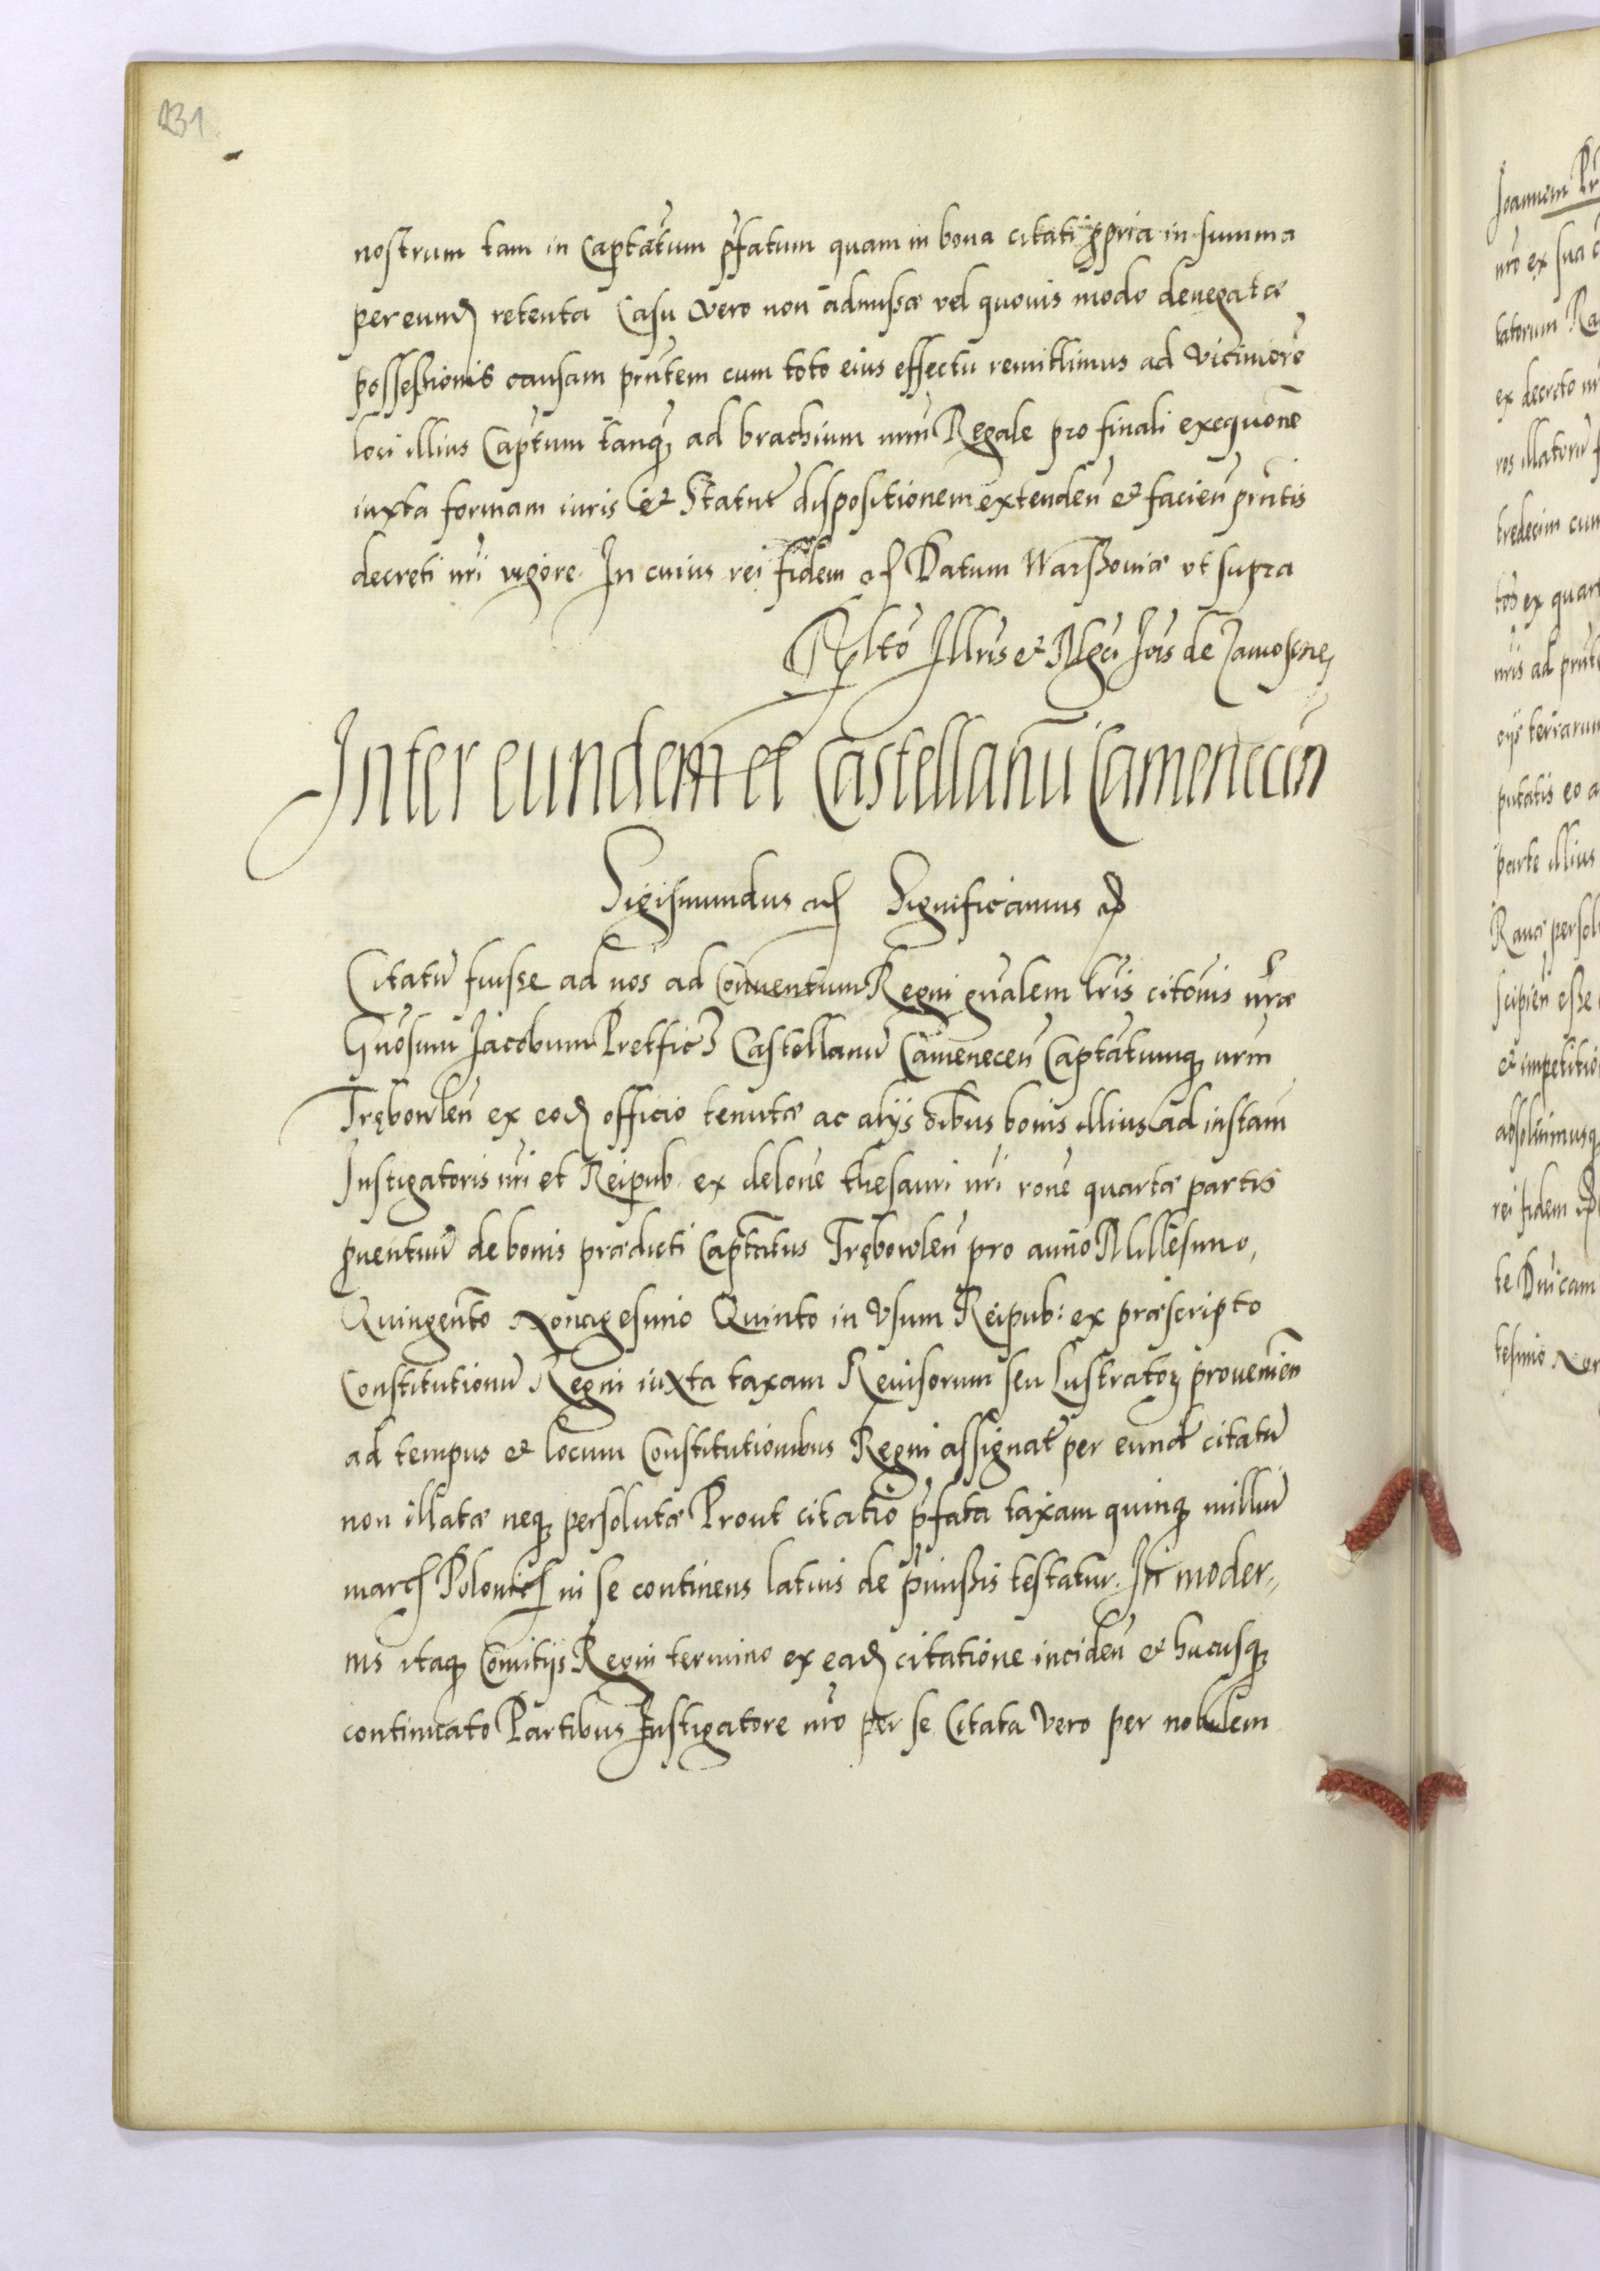 231
nostrum tam in Captatum pfatum quam in bona citati ppria in summa
per eund retenta Casu vero non admissæ vel quouis modo denegatæ
possessionis causam pntem cum toto eius effectu remittimus ad viciniore
loci illius Captum tanq ad brachium nrm Regale pro finali exequone
iuxta formam iuris et Statut dispositionem extenden et facien pntis
decreti nri vigore. In cuius rei fidem etc Datum Warssouiæ vt supra
Rltō Illris et Mgci Iois de Zamoscie
Inter eundem et Castellanū Camenecen
Sigismundus etc Significamus etc
Citatū fuisse ad nos ad Conuentum Regni gnalem lris citonis nræ
Gnosum Jacobum Pretficz Castellanū Camenecen Captatumq nrm
Trębowlen ex eod officio tenutæ ac alijs oibus bonis illius ad instam
Instigatoris nri et Reipub: ex delone thesauri nri rone quartæ partis
puentuū de bonis prædicti Captatus Trębowlen pro anno Millesimo,
Quingento Nonagesimo Quinto in Vsum Reipub: ex præscripto
Constitutionū Regni iuxta taxam Reuisorum seu Lustratoꝝ prouenien
ad tempus et locum Constitutionibus Regni assignat per eund citatū
non illatæ neq persolutæ Prout citatio pfata taxam quinq milliū
marc Polonic in se continens latius de pmissis testatur. In moder„
nis itaq Comitijs Regni termino ex ead citatione inciden et hucusq
continuato Partibus Instigatore nro per se Citata vero per nobilem
Joannem
nro ex sua
tatorum
ex decreto
ros illatorū
tredecim cum
tos ex quart
nris ad
terrarum
putatis eo a
parte illius
Rauæ persol
scipien esse
et impetitio
absoluimusq
rei fidem etc
te Dnicam
tesimo Non